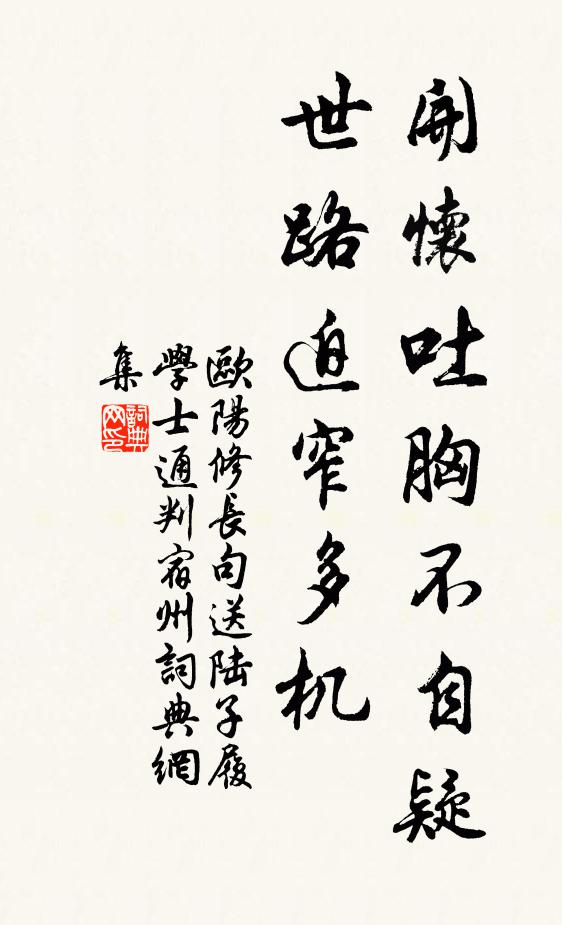 開懷吐胸不自疑
世路迫窄多机
歐陽修長句送陸子履
學士通判宿州詞典網
集
詞典网印